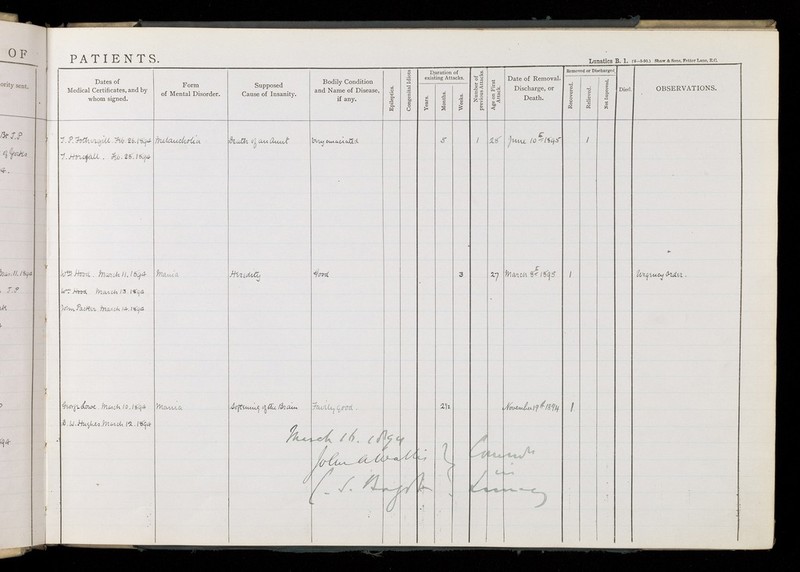 OF
PATIENTS.
Lunatics B. 1.
Shaw & Sons, Fetter Lane, E.C.
Dates of
Medical Certificates, and by
whom signed.
Form
of Mental Disorder.
Supposed
Cause of Insanity.
Bodily Condition
and Name of Disease,
if any.
Epileptics.
Congenital Idiots
Duration of
existing Attacks.
Years.
Months.
Weeks.
Number of
previous Attacks.
Age on First
Attack.
Date of Removal.
Discharge, or
Death.
Removed or Discharged
Recovered.
Relieved.
Not Improved.
Died.
OBSERVATIONS.
J. P. Fothergill. Feb. 26. 1894 Melancholia Death of an Aunt Very emaciated 5 1 25 June 10th 1895 1
J. Horsfall. Feb. 26. 1894
Wm Hood. March 11. 1894 Mania Heredity Good 3 27 March 5th 1895 1 Urgency Order.
Wm Hood March 13. 1894
March 14. 1894
Lowe March 10. 1894 Mania Softening of the Brain Fairly Good 2½ November 19th 1894 1
D. W. Hughes March 12. 1894
March 16. 1894
John A Wallis
C. S. Bagot
in
Lunacy